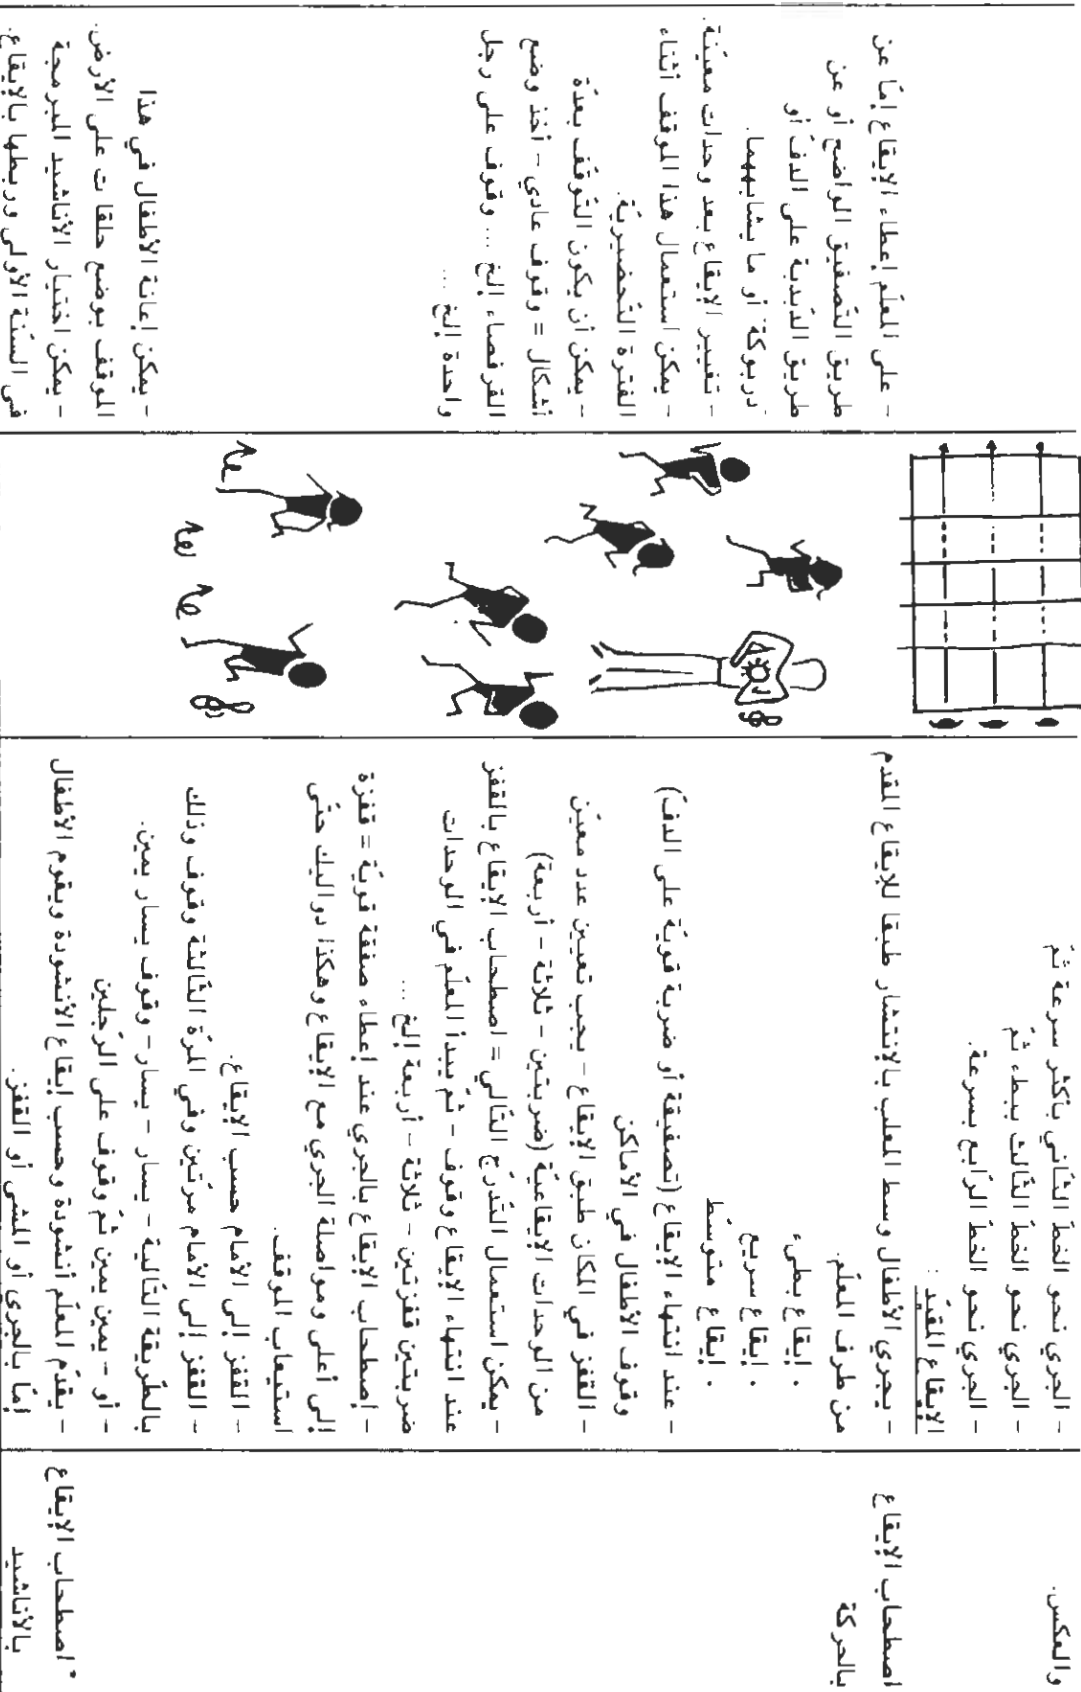 والعكس.
اصطحاب الإيقاع
بالحركة
* اصطحاب الإيقاع
بالأناشيد
- الجري نحو الخطّ الثّاني بأكثر سرعة ثمّ
- الجري نحو الخطّ الثّالث ببطء ثمّ
- الجري نحو الخطّ الرّابع بسرعة.
الإيقاع المقيّد :
- يجري الأطفال وسط الملعب بالإنتشار طبقا للإيقاع المقدم
من طرف المعلّم.
• إيقاع بطيء
• إيقاع سريع
• إيقاع متوسّط
- عند انتهاء الإيقاع (تصفيقة أو ضربة قويّة على الدفّ)
وقوف الأطفال في الأماكن
- القفز في المكان طبق الإيقاع - يجب تعيين عدد معيّن
من الوحدات الإيقاعيّة (ضربتين - ثلاثة - أربعة)
- يمكن استعمال التّدرّج التّالي = اصطحاب الإيقاع بالقفز
عند انتهاء الإيقاع وقوف - ثمّ يبدأ المعلّم في الوحدات
ضربتين قفزتين - ثلاثة - أربعة إلخ ...
- إصطحاب الإيقاع بالجري عند إعطاء صفقة قويّة = قفزة
إلى أعلى ومواصلة الجري مع الإيقاع وهكذا دواليك حتّى
استيعاب الموقف.
- القفز إلى الأمام حسب الإيقاع.
- القفز إلى الأمام مرّتين وفي المرّة الثّالثة وقوف وذلك
بالطّريقة التّالية - يسار - يسار - وقوف يسار يمين.
- أو - يمين يمين ثمّ وقوف على الرّجلين
- يقدّم المعلّم أنشودة وحسب إيقاع الأنشودة ويقوم الأطفال
إمّا بالجري أو المشي أو القفز.
- على المعلّم إعطاء الإيقاع إمّا عن
طريق التّصفيق الواضح أو عن
طريق الدّبدبة على الدفّ أو
دربوكة أو ما يشابههما.
- تغيير الإيقاع بعد وحدات معيّنة.
- يمكن استعمال هذا الموقف أثناء
الفترة التّحضيريّة.
- يمكن أن يكون التّوقّف بعدّة
أشكال = وقوف عادي - أخذ وضع
القرفصاء إلخ ... وقوف على رجل
واحدة إلخ ...
- يمكن إعانة الأطفال في هذا
الموقف بوضع حلقات على الأرض.
- يمكن اختيار الأناشيد المبرمجة
في السّنة الأولى وربطها بالإيقاع.